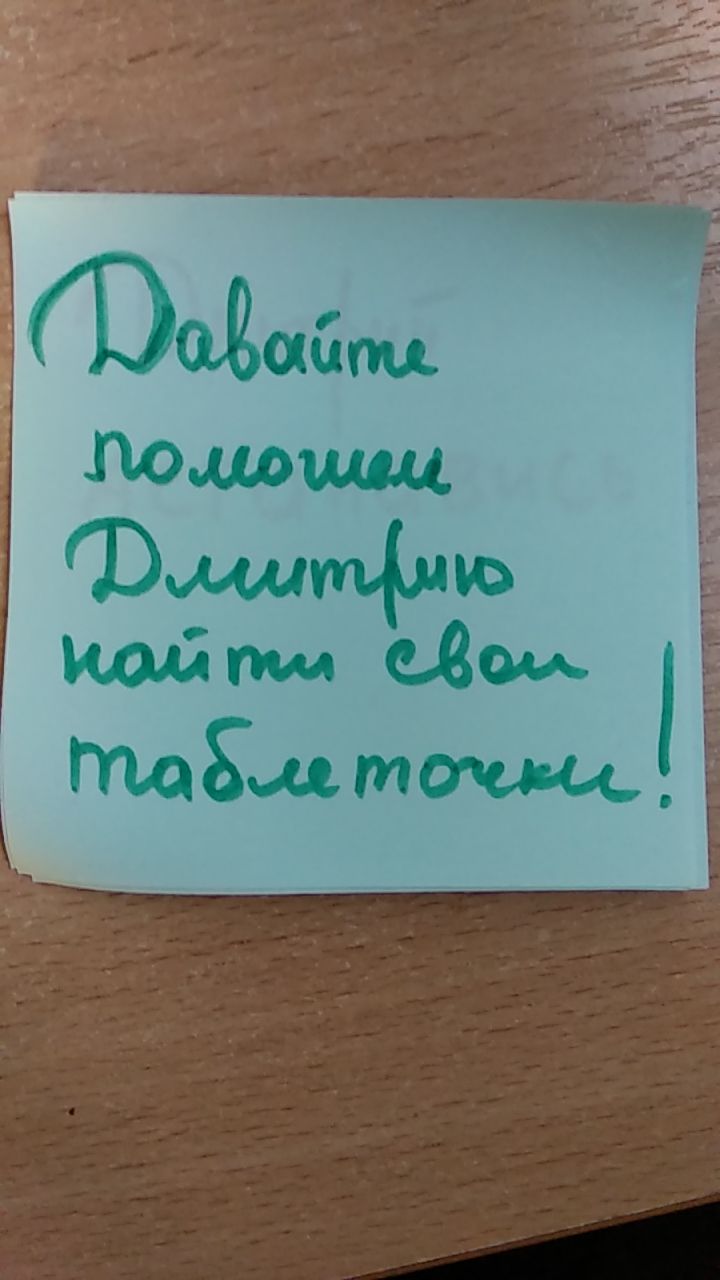 Давайте
поможем
Дмитрию
найти свои
таблеточки!